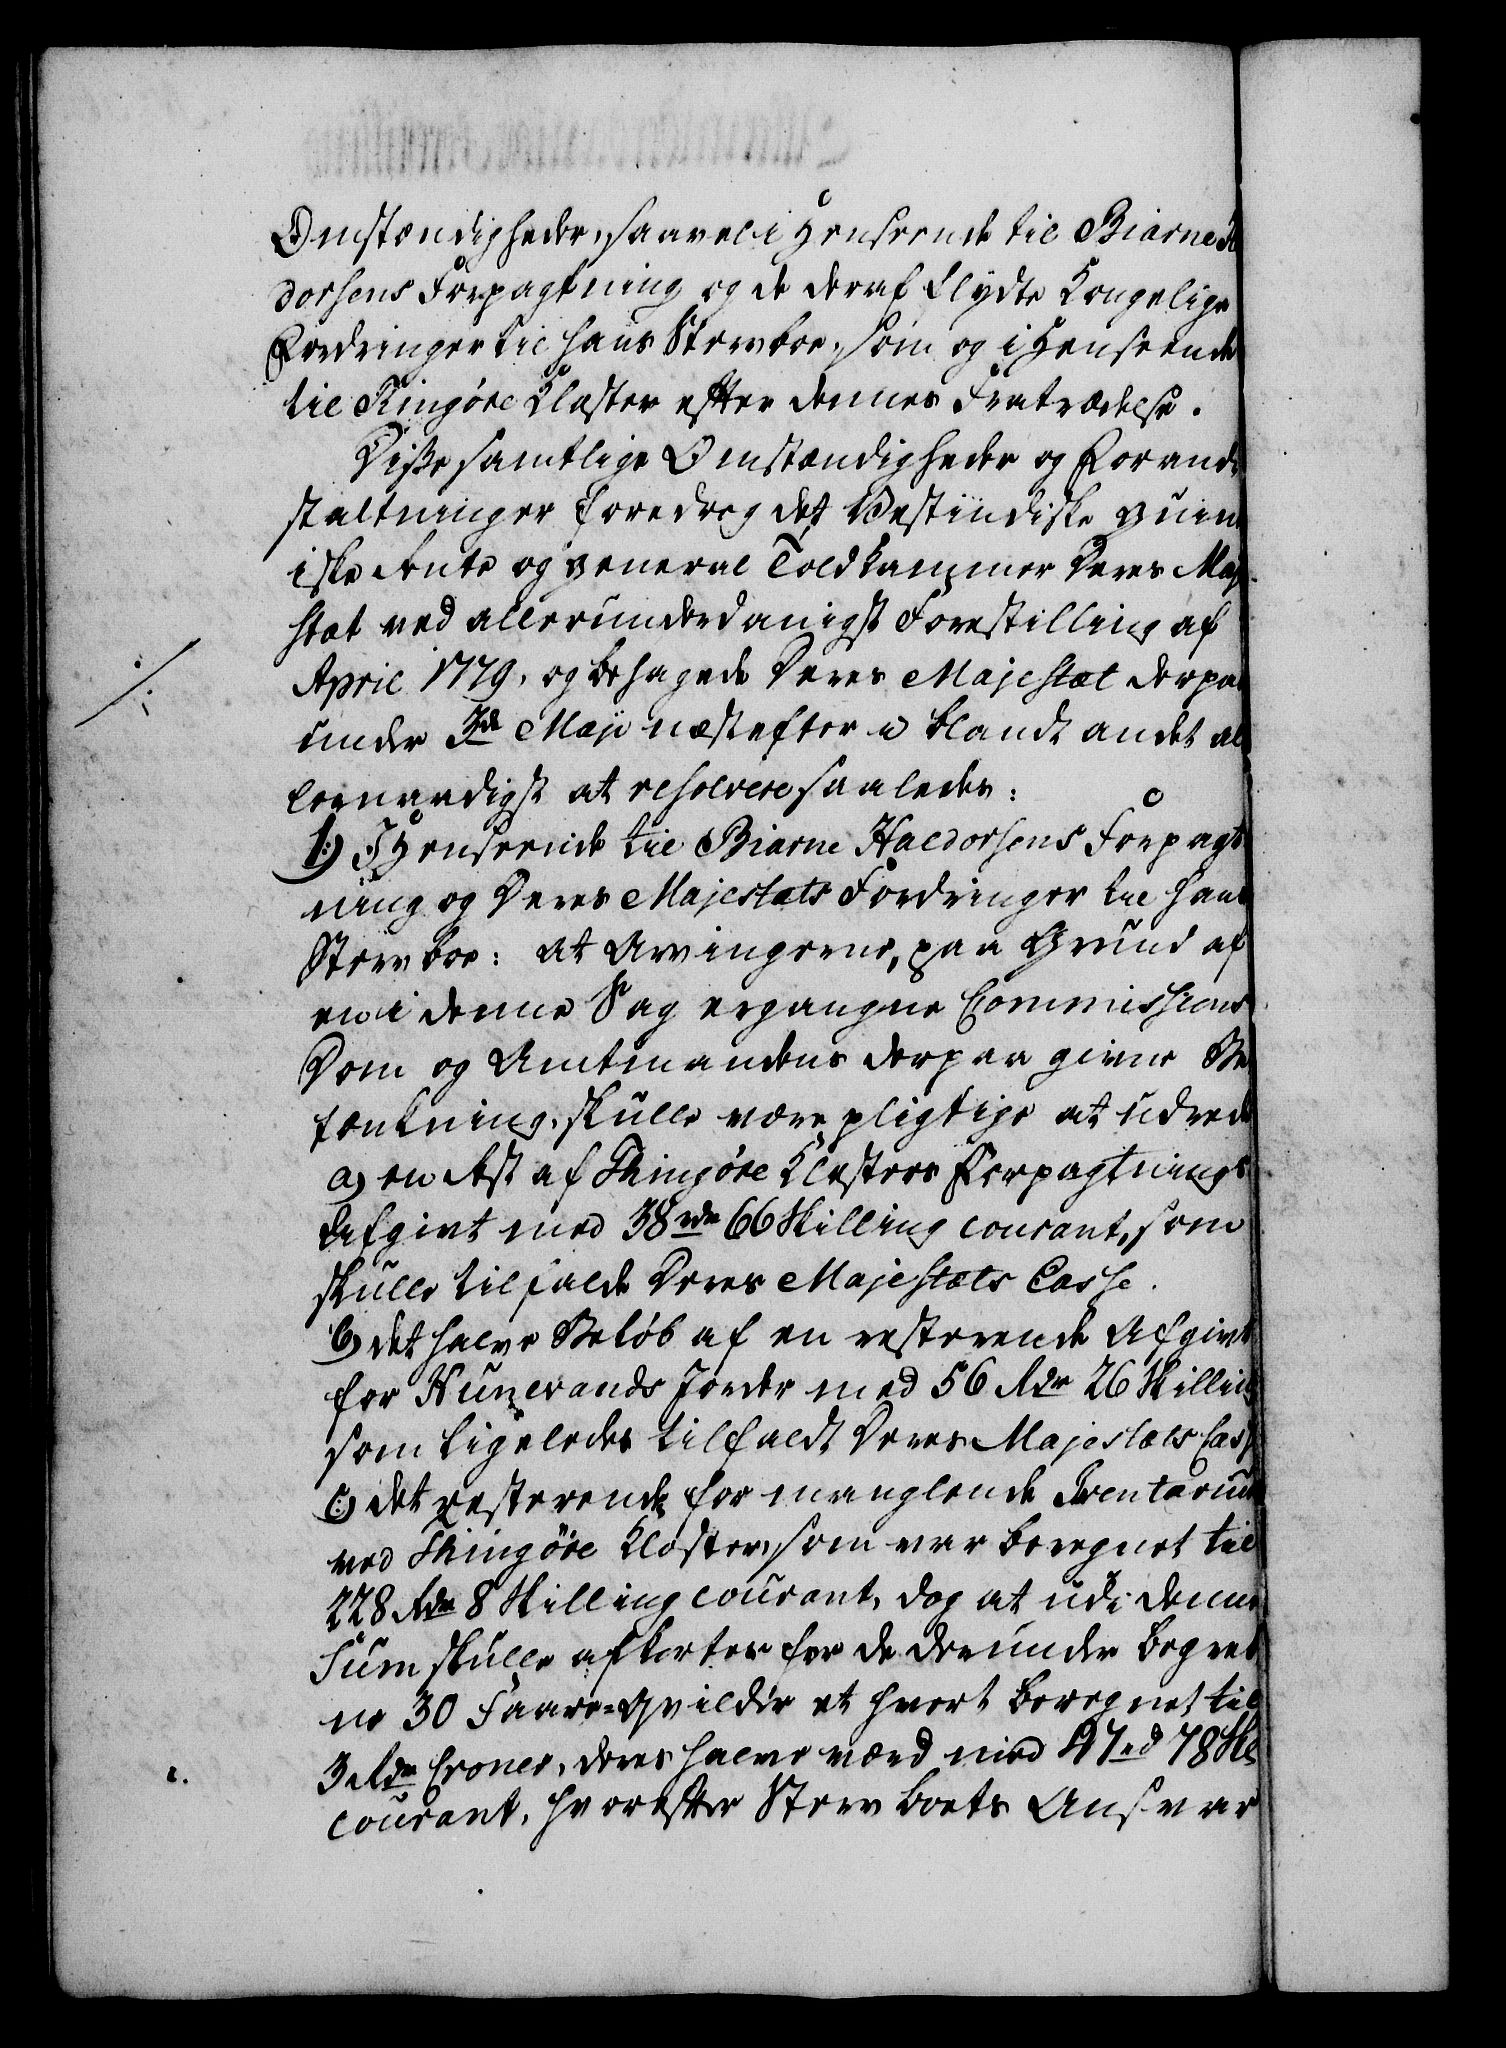 Omstændigheder, saavel i Henseende til Biarne H
dorsens Forpagtning og de deraf flydte Kongelige
Fordringer til hans Sterwboe, som og i Henseende
til Tingöre Kloster efter dennes Fratrædelse.
Disse samtlige Omstændigheder og Foran
staltninger foredrog det Westindiske Guine
iske Rente og general Toldkammer Deres Maje
stæt ved allerunderdanigst Forestilling af
April 1779, og behagede Deres Majestæt derpaa
under 3de Maji næstefter iblandt andet al
lernaadigst at resolvere saaledes:
1) I Henseende til Biarne Haldorsens Forpagt
ning og Deres Majestæts Fordringer til hans
Sterwboe: at Arvingerne, paa Grund af
en i denne Sag ergangne Commissions
Dom og Amtmandens derpaa givne Be
tænkning, skulle være pligtige at udrede
a) en Rest af Thingöre Klosters Forpagtnings
Afgivt med 38 rdr 66 Skilling courant, som
skulle tilfalde Deres Majestæts Casse.
b) det halve Beløb af en resterende Afgivt
for Hunevands Jorder med 56 Rdr 26 Skilling
som ligeledes tilfaldt Deres Majestæts Cass
c) det resterende for manglende Inventarium
ved Thingöre Kloster, som var beregnet til
228 Rdr 8 Skilling courant, dog at udi denne
Sum skulle afkortes for de derunder begreb
ne 30 Faare-Qvilder et hvert beregnet til
3 Rdr Croner, deres halve værd med 47 rd 78 Sk
courant, hvorefter Sterwboets Ansvar